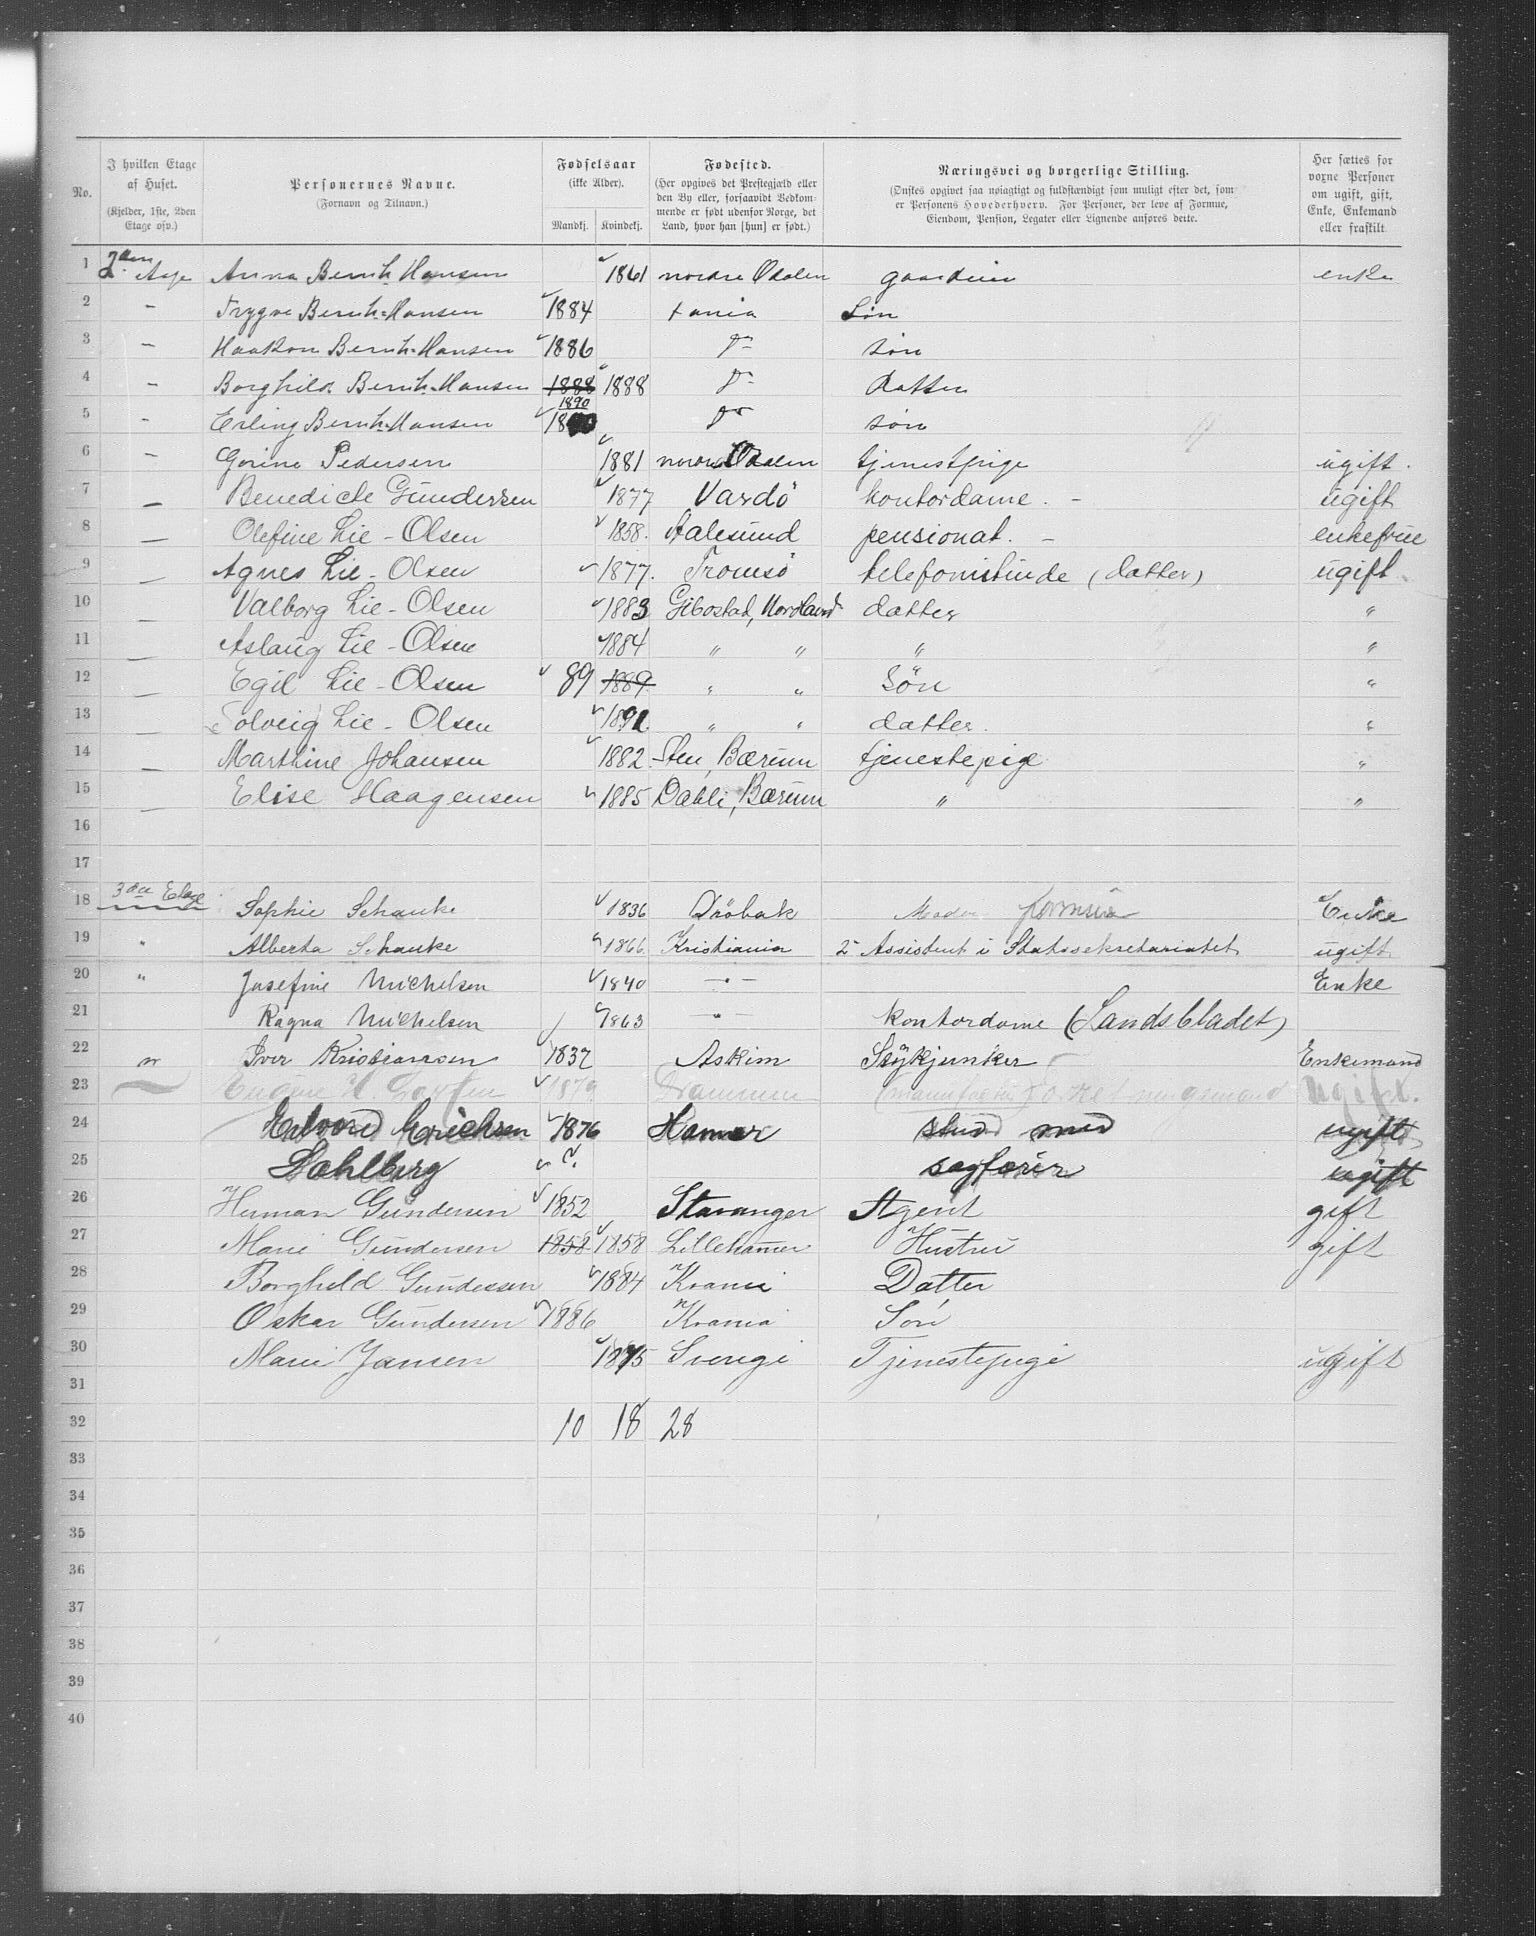 No.
I hvilken Etage af Huset. (Kjelder, 1ste, 2den Etage osv.)
Personernes Navne. (Fornavn og Tilnavn.)
Fødselsaar (ikke Alder). Mandkj. Kvindekj.
Fødested. (Her opgives det Prestegjæld eller den By eller, forsaavidt Vedkommende er født udenfor Norge, det Land, hvor han [hun] er født.)
Næringsvei og borgerlige Stilling. (Ønskes opgivet saa nøiagtigt og fuldstændigt som muligt efter det, som er Personens Hovederhverv. For Personer, der leve af Formue, Eiendom, Pension, Legater eller Lignende anføres dette.
Her sættes for voxne Personer om ugift, gift, Enke, Enkemand eller fraskilt
1 Anna Bernh Hansen 1861 nordre Odalen enke
2 - Trygve Bernh-Hansen 1884 Søn
3 - Haakon Bernh-Hansen 1886 do søn
4 - Borghild Bernh-Hansen 1888 1888 do datter
5 - Erling Bernh-Hansen 1890 do søn
6 - Gorine Pedersen 1881 nordre Odalen tjenestpige ugift.
7 - Benedicte Gundersen 1877 Vardö kontordame. - ugift
8 - Olefine Lie-Olsen 1858. Aalesund pensionat. - enkefrue
9 - Agnes Lie-Olsen 1877. Tromsö telefonistinde (datter) ugift.
10 - Valborg Lie-Olsen 1883 Gibostad, Nordland datter "
11 - Aslaug Lie-Olsen 1884 " " " "
12 - Egil Lie-Olsen 89 1889 " " Sön "
13 - Solveig Lie-Olsen 1891 " " datter. "
14 - Marthine Johansen 1882. Sten, Bærum tjenestepige "
15 - Elise Haagensen 1885 Dahli, Bærum " "
16
17
18 3die Etage Sophie Schanke 1836 Dröbak Moder Enke
19 " Alberta Schanke 1866. Kristiania 2- Assistent i Statssekretariatet. ugift.
20 " Josefine Michelsen 1840 - " - Enke
21 Ragna Michelsen 1863 - " - kontordame (Landsbladet)
22 " Iver Kristiansen 1837 Askim Enkemand
23 1879 Drammen ugift.
24 Erichsen 1876 Hamar stud med ugift
25 Dahlberg ?. sagfører ugift
26 Herman Gundersen 1852 Stavanger Agent gift
27 Marie Gundersen 1858 1858 Lillehamer Hustru gift
28 Borghild Gundersen 1884 Krania Datter
29 Oskar Gundersen 1886 Krania Søn
30 Marie Jansen 1875 Sverige Tjenestepige ugift
31
32 10 18 28
33
34
35
36
37
38
39
40